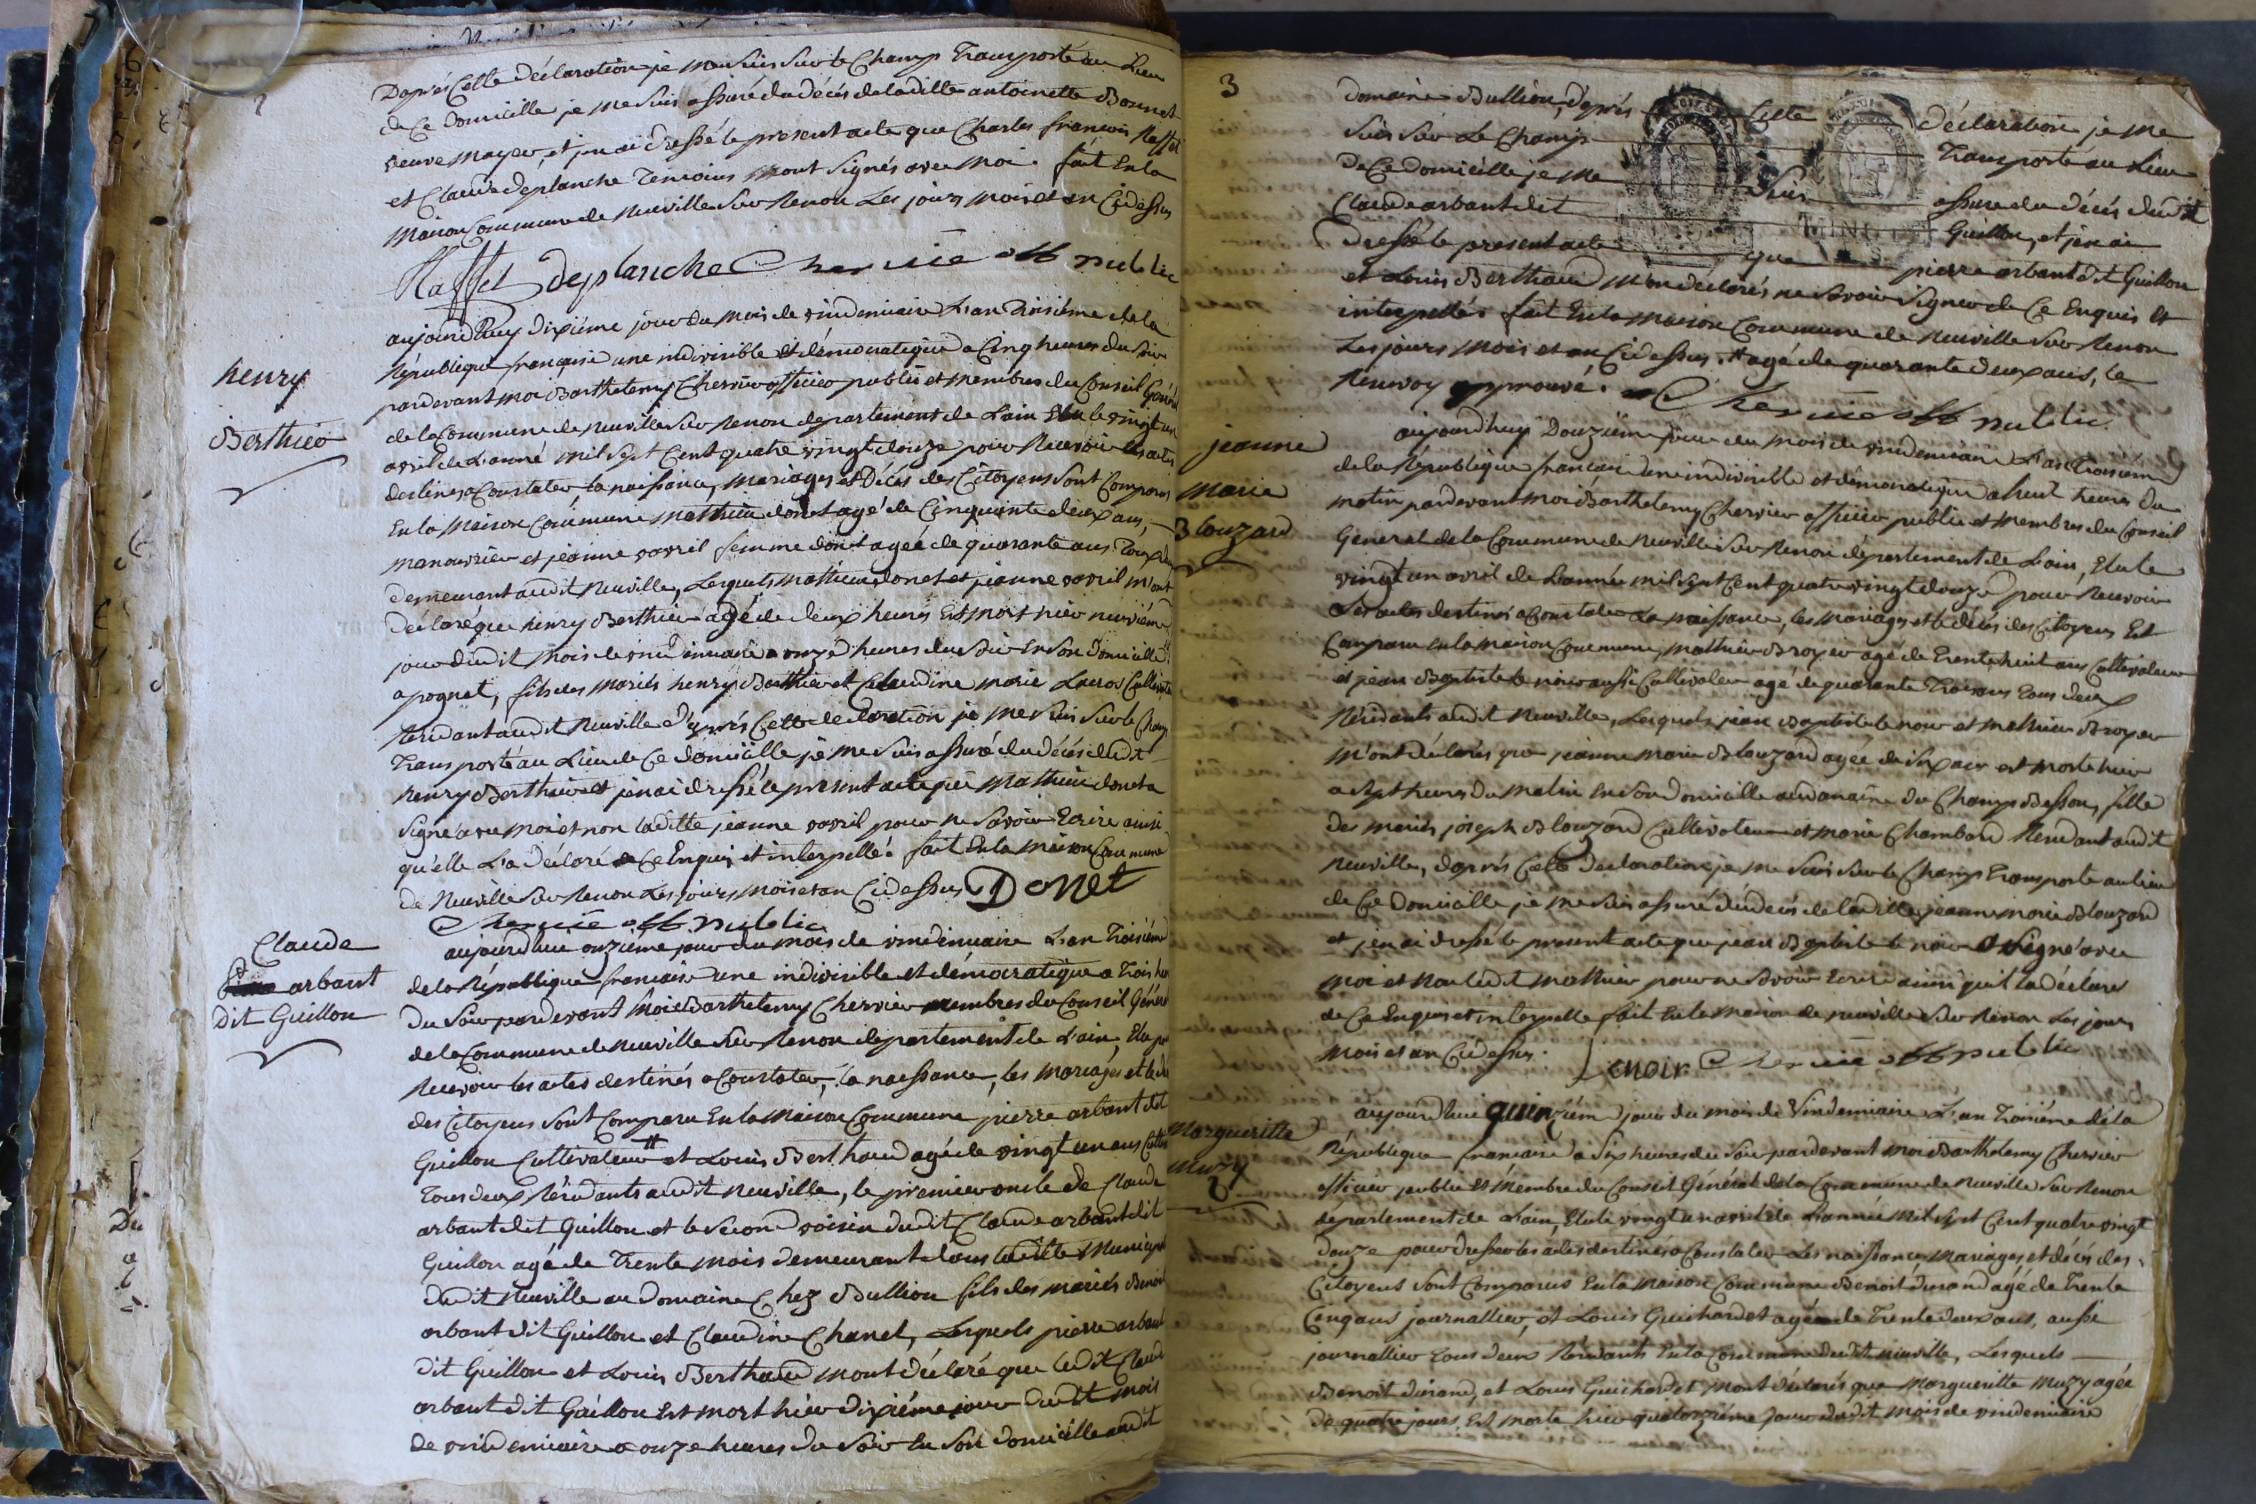 Daprès Cette déclaration je me suis sur le Champ Transporté au Lieu
de Ce domicille je me suis assuré du décés de laditte antoinette Bonnet
veuve mayer, et j'en ai dressé le présent acte que Charles françois Raffet
et Claude deplanche Temoins mont signés avec moi. fait En la
maison Commune de Neuville Sur Renon Les jours mois et an Cidessus
Raffet deplanche Chervié off public
henry
Berthier
aujourd'huy dixiéme jour du mois de vindemiaire L'an Troisiéme de la
République française une indivisible et démocratique a Cinq heures du soir
pardevant moi Barthelemy Chervier officier public et membres du Conseil Général
de la Commune de Neuville Sur Renon département de Lain Elu le vingt un
avril de L'anné mil sept Cent quatre vingt douze pour Recevoir les actes
destinés a Constater la naissance, mariages et Décés des Citoyens sont Comparus
En la maison Commune mathieu donet agé de Cinquante deux ans,
manouvrier et jeanne vavril femme donet agée de quarante ans Tous deux
demeurant audit Neuville, Lesquels mathieu donet et jeanne vavril m'ont
déclaré que henry Berthier agé de deux heures Est mort hier neuviéme
jour dudit mois de vindimiaire a onze heures du soir En son domicille
a pognet, fils des mariés henry Berthier et Claudine marie Lacros Cultivateur
Résidant audit Neuville d'après Cette declaration je me suis sur le Champ
Transporté au Lieu de Ce domicille je me suis assuré du décés dudit
henry Berthier et j'en ai dressé le présent acte que Mathieu donet a
signé avec moi et non laditte jeanne vavril pour ne savoir Ecrire ainsi
qu'elle L'a déclaré de Ce Enquis et interpellé. fait En la maison Commune
de Neuville Sur Renon Les jours mois et an Cidessus Donet
Chervié off public
Claude
arbant
dit Guillon
aujourd'huie onziéme jour du mois de vindimiaire L'an Troisiéme
de la République française une indivisible et démocratique a Trois heu
du Soir pardevant moi Barthelemy Chervier membres du Conseil Général
de la Commune de Neuville Sur Renon departement de L'ain Elu pour
Recevoir les actes destinés a Constater, la naissance, les mariages et le dé
des Citoyens sont Comparu En la maison Commune pierre arbant dit
Guillon Cultivateur # et Louis Berthaud agé de vingt un ans Cultiv
Tous deux Résidants audit Neuville, le premier oncle de Claude
arbant dit Guillon et le second voisin dudit Claude arbant dit
Guillon agé de Trente mois demeurant dans laditte Municipalité
dudit Neuville au domaine Chez Bullion fils des mariés Benoit
arbant dit Guillon et Claudine Chanel, Lesquels pierre arbant
dit Guillon et Louis Berthaud mont déclaré que ledit Claude
arbant dit Guillon Est mort hier dixiéme jour dudit mois
de vindemiaire a onze heures du Soir En son domicille audit
3
domaine Bullion, d'après Cette déclaration je me
suis sur Le Champ Transporté au Lieu
de Ce domicille je me suis assuré du décés dudit
Claude arbant dit Guillon, et j'en ai
dressé le présent acte que pierre arbant dit Guillon
et Louis Berthaud m'on déclarés ne savoir signer de Ce Enquis et
interpellés fait En la maison Commune de Neuville Sur Renon
Les jours mois et an Cidessus. # agé de quarante deux ans, le
Renvoy approuvé. Chervié off public.
jeanne
marie
Blouzard
aujourd'huy Douziéme jour du mois de vindemiaire L'an Troisiéme
de la République française une indivisible et démocratique a huit heures du
matin pardevant moi Barthelemy Chervier officier public et membres du Conseil
Général de la Commune de Neuville Sur Renon département de Lain, Elu le
vingt un avril de L'année mil sept Cent quatre vingt douze pour Recevoir
Les actes destinés a Constater La naissance, les mariages et le décés des Citoyens Est
Comparu En la maison Commune, mathieu Broyer agé de Trente huit ans Cultivateur
et jean Baptiste le noir aussi Cultivateur agé de quarante Trois ans Tous deux
Résidants audit Neuville, Lesquels jean Baptiste le noir et mathieu Broyer
m'ont déclarés que jeanne marie Blouzard agée de six ans est morte hier
a sept heures du matin En son domicille au domaine du Champ Besson, fille
des mariés joseph Blouzard Cultivateur et marie Chambard Résidant audit
Neuville, daprès Cette déclaration je me suis sur le Champ Transporté au lieu
de Ce domicille je me suis assuré du décés de laditte jeanne marie Blouzard
et j'en ai dressé le présent acte que jean Baptiste le noir a signé avec
moi et non ledit mathieu pour ne savoir Ecrire ainsi qu'il la déclaré
de Ce Enquis et interpellé fait En la maison de neuville Sur Renon Les jours
mois et an Cidessus. Lenoir Chervié off public
Margueritte
Muzy
aujourd'hui quinziém jour du mois de Vindemiaire L'an Troisiéme de la
République francaise a six heures du Soir pardevant moi Barthelemy Chervier
officier public et Membre du Conseil Général de la Commune de Neuville Sur Renon
département de Lain, Elu le vingt un avril de L'année mil sept Cent quatre vingt
douze pour dresser les actes destinés a Constater Les naissances, mariages, et décés des
Citoyens sont Comparus En la maison Commune Benoit durand agé de Trente
Cinq ans journallier, et Louis Guichardet agé de Trente deux ans, aussi
journallier Tous deux Résidants En la Commune dudit neuville, Lesquels
Benoit durand, et Louis Guichardet mont déclarés que Margueritte Muzy agée
de quatre jours, Est morte hier quatorziéme jour dudit mois de vindemiaire